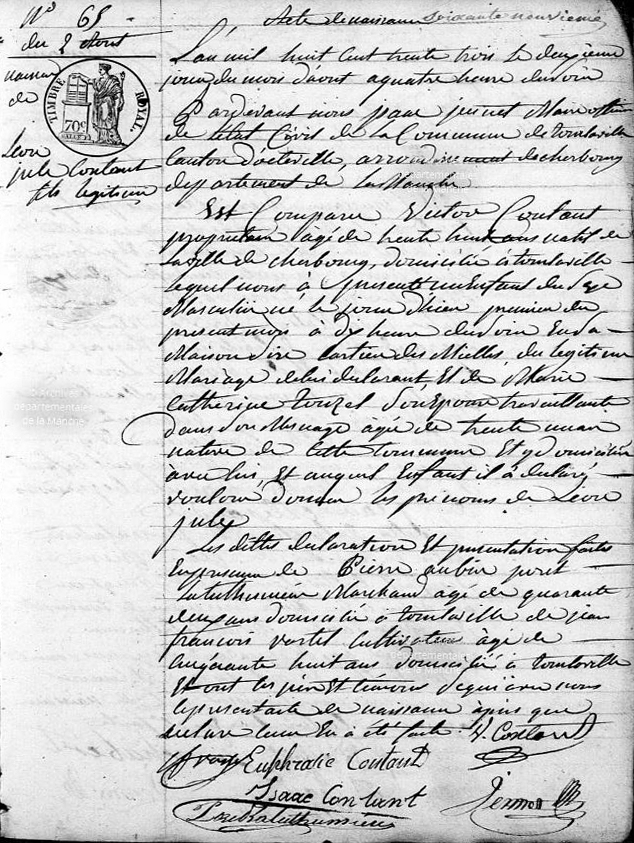 N° 65
du 2 Aout
naissance
de
Leon
jule Coutant
fils legitime
TIMBRE ROYAL
70c
Acte de naissance soixante neuvieme
L'an mil huit cent trente trois le deuxieme
jour du mois d'aout a quatre heure du soir
Pardevant nous Maire officier
de l'Etat Civil de la Commune de tourlaville
Canton d'octeville, arrondinement de cherbourg
departement de la Manche
Est Comparu Victor Coutant
proprietaire âgé de trente huit ans natif de
la ville de cherbourg, domicilié à tourlaville
lequel nous à presenté un Enfant du Sexe
Masculin né le jour d'hier premier du
present mois à dix heure du soir En sa
Maison Sise cartier des Mielles du legitime
Mariage de lui declarant, Et de Marie
Catherine touzel Son Epouse travaillante
dans Son Menage agée de trente un an
native de Cette Commune Et y domiciliée
avec lui, Et auquel Enfant il à declaré
vouloir donner les prénoms de Leon
jule
Les dittes declaration Et presentation faites
En presence de Pierre aubin
Marchand agé de quarante
deux ans domicilié à tourlaville de jean
françois Cultivateur âgé de
Cinquante huit ans domicilié à tourlaville
Et ont les père Et témoins Signé avec nous
le present acte de naissance après que
lecture leur En à été faite V. Coutant
Euphrasie Coutant
Isaac Contant
Archives
départementales
de la Manche